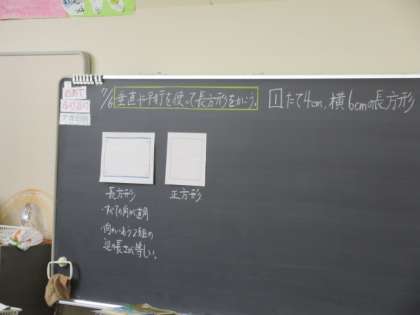 7/6 垂直や平行を使って長方形をかこう。
1 たて4cm、横6cmの長方形
長方形
・すべての角が直角
・向かいあう2組の
辺の長さが等しい。
正方形
めあて
ふりかえり